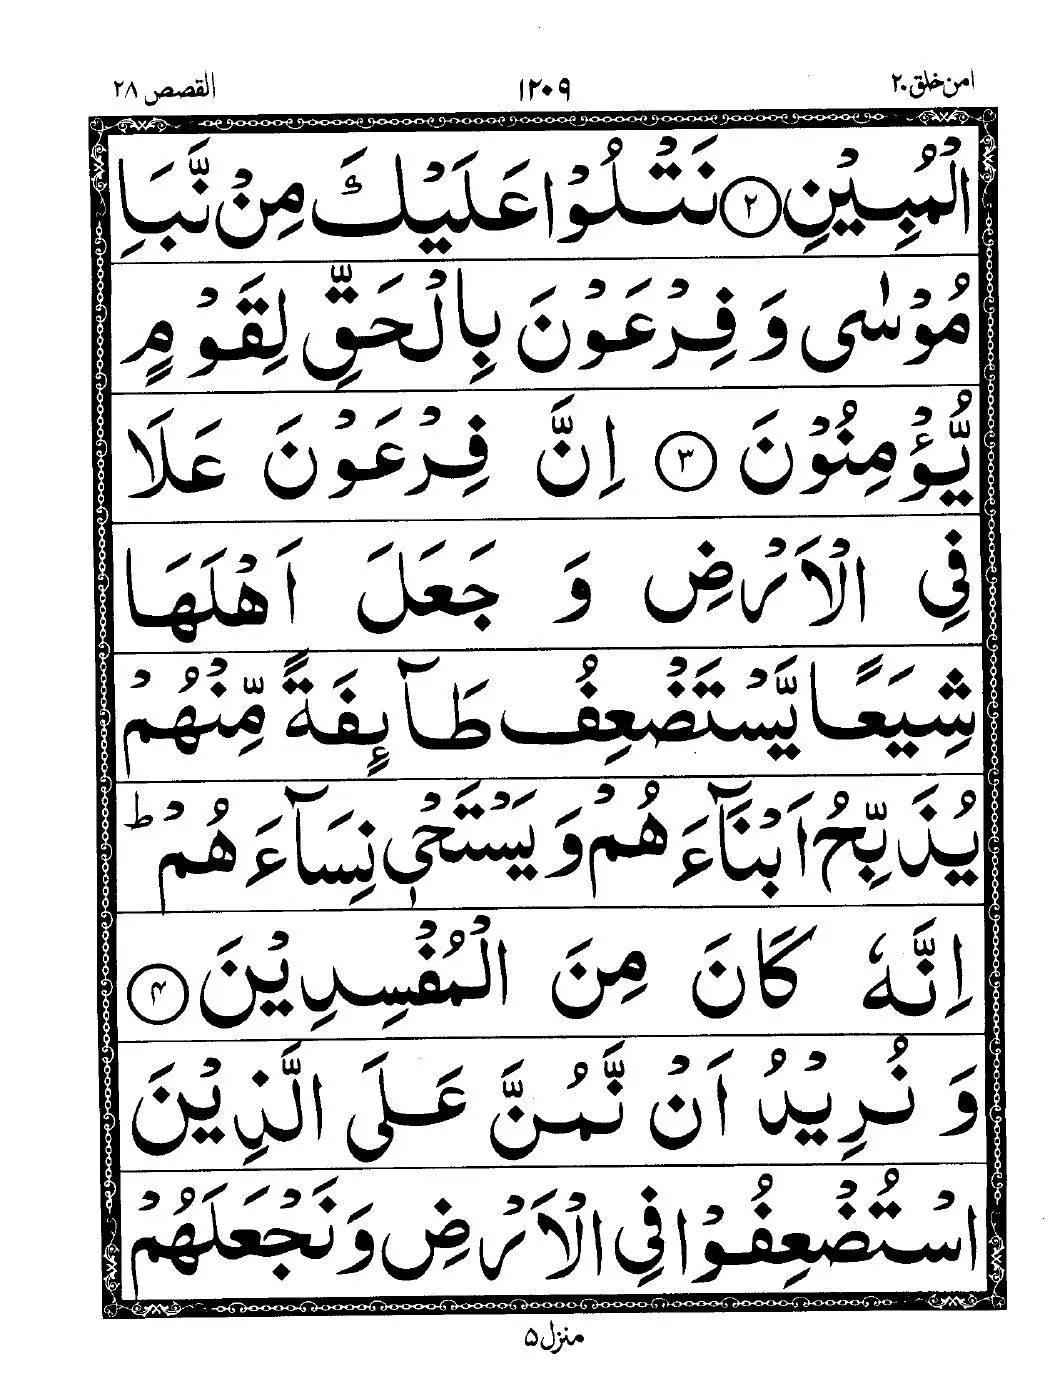 امن خلق ٢٠ ١٢٠٩ القصص ٢٨
الْمُبِيْنِ ۝٢ نَتْلُوْا عَلَيْكَ مِنْ نَّبَاِ
مُوْسٰى وَ فِرْعَوْنَ بِالْحَقِّ لِقَوْمٍ
يُّؤْمِنُوْنَ ۝٣ اِنَّ فِرْعَوْنَ عَلَا
فِي الْاَرْضِ وَ جَعَلَ اَهْلَهَا
شِيَعًا يَّسْتَضْعِفُ طَآىِٕفَةً مِّنْهُمْ
يُذَبِّحُ اَبْنَآءَ هُمْ وَ يَسْتَحْیٖ نِسَآءَ هُمْ ؕ
اِنَّهٗ كَانَ مِنَ الْمُفْسِدِيْنَ ۝٤
وَ نُرِيْدُ اَنْ نَّمُنَّ عَلَى الَّذِيْنَ
اسْتُضْعِفُوْا فِي الْاَرْضِ وَ نَجْعَلَهُمْ
منزل ٥